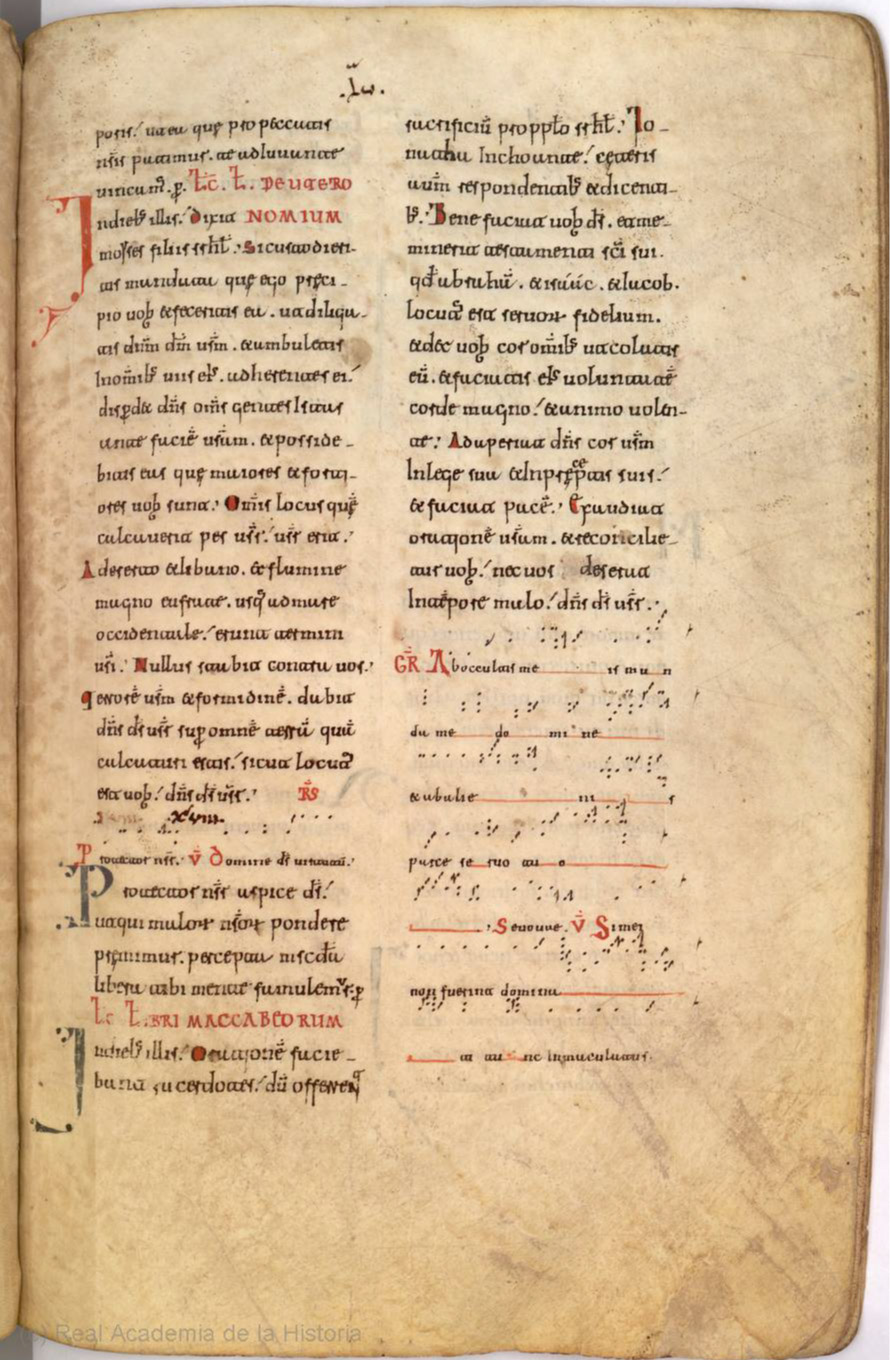 .Lv.
poris. ut ea quę pro peccatis
nr̄is patimur. te adiuuante
uincam̄. ꝑ. Lc̄. L. DEUTERO
Indieb; illis. Dixit NOMIUM
moyses filiis isrhł. Si custodieri-
tis mandata quę ego pręci-
pio uob & feceritis ea. ut diliga-
tis dn̄m dm̄ ur̄m. & ambuletis
In om̄ib; uiis ei;. adherentes ei.
disꝑdet dn̄s om̄s gentes Istas
ante faciē ur̄am. & posside-
bitis eas quę maiores & forti-
ores uob sunt. Om̄is locus quę
calcauerit pes ur̄. ur̄ erit.
A deserto & libano. & flumine
magno eufrate. usq; ad mare
occidentale. erunt termini
ur̄i. Nullus stabit contra uos.
terrorē ur̄m & formidinē. dabit
dn̄s ds̄ ur̄ suꝑ omnē terrā quā
calcaturi estis. sicut locutꝰ
est uob. dn̄s ds̄ ur̄. R̄S
Protector nr̄. V̄ Domine ds̄ uirtutū.
Protector nr̄ aspice ds̄.
ut qui malorꝝ nr̄orꝝ pondere
pręmimur. percepta mīscdīa
libera tibi mente famulemꝰ. ꝑ
Lc̄ LIBRI MACCABEORUM
Indieb; illis. Orationē facie-
bant sacerdotes. dū offerrent
sacrificiū pro pp̄lo isrhł. Io-
natha Inchoante. ceteris
autm̄ respondentib; & dicenti-
b;. Bene faciat uob ds̄. et me-
minerit testamenti sc̄i sui.
qd̄ abrahā. & isáác. & Iacob.
locutꝰ est seruorꝝ fidelium.
& det uob cor om̄ib; ut colatis
eū. & faciatis ei; uoluntatē
corde magno. & animo uolen-
te. Adaperiat dn̄s cor ur̄m
In lege sua & In pręceptis suis.
& faciat pacē. Exaudiat
orationē ur̄am. & reconcilie-
tur uob. nec uos deserat
In tēpore malo. dn̄s ds̄ ur̄.
GR̄ Ab occultis me is mu n
da me do mi ne
& ab alie ni s
parce se ruo tu o
Seuouae. V̄ Si mei
non fuerint domina
ti tu nc Inmaculatus.
(c) Real Academia de la Historia